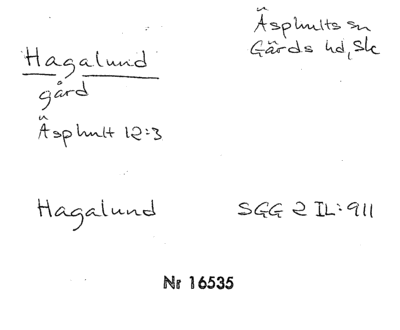 Äsphults sn
Gärds hd, Sk
Hagalund
gård
Äsphult 12:3
Hagalund SGG 2 IL:911
Nr 16535